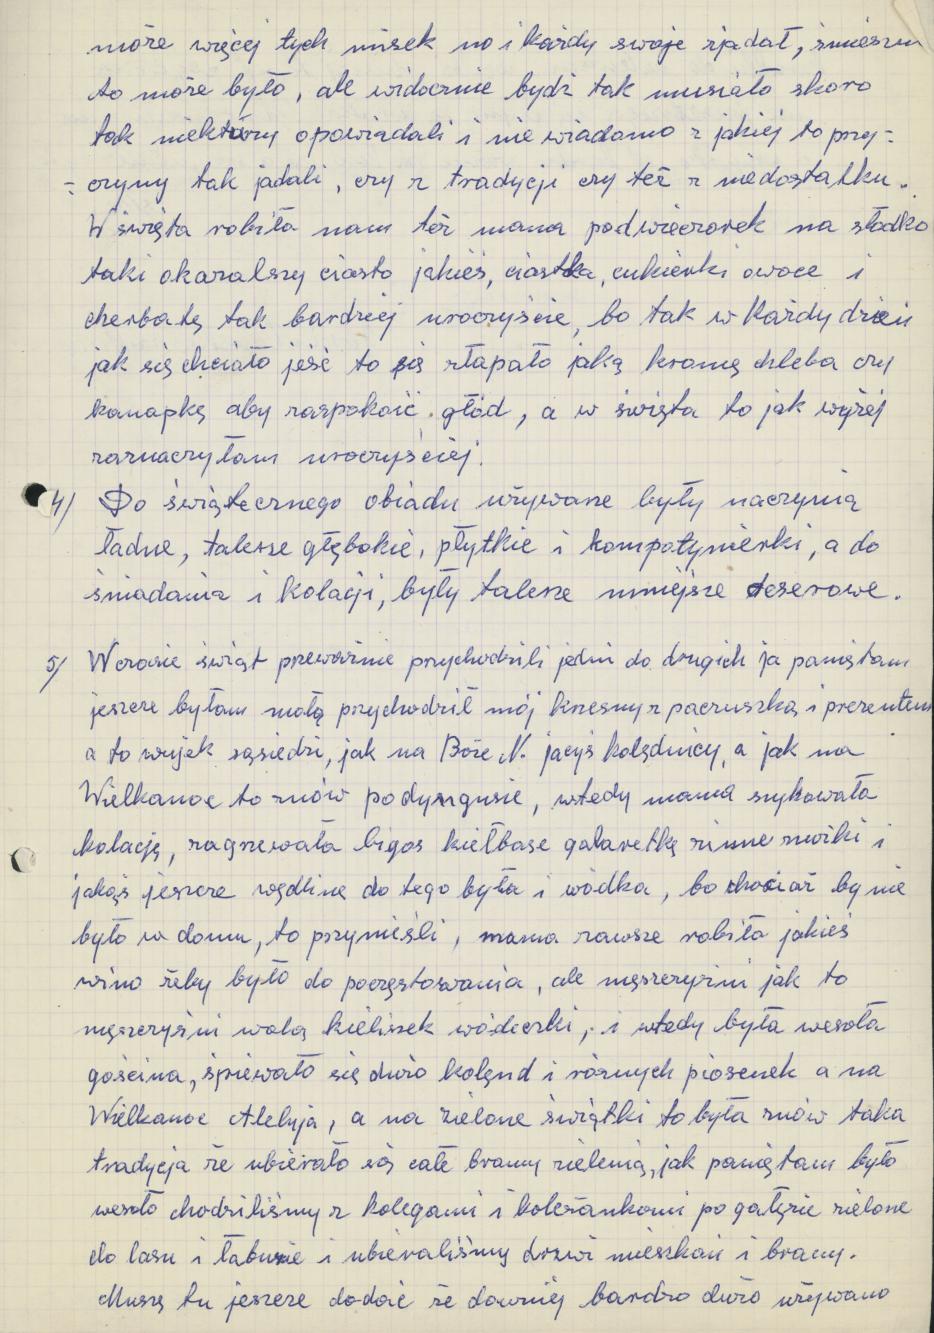 może więcej tych misek no i każdy swoje zjadał, śmieszn
to może było, ale widocznie bydź tak musiało skoro
tak niektórzy opowiadali i nie wiadomo z jakiej to przy-
czyny tak jadali, czy z tradycji czy też z niedostatku.
W święta robiła nam też mama podwieczorek na słodko
taki okazalszy ciasto jakieś, ciastka, cukierki owoce i
cherbatę tak bardziej uroczyście, bo tak w każdy dzień
jak się chciało jeść to się złapało jaką kromę chleba czy
kanapkę aby zaspokoić głód, a w święta to jak wyżej
zaznaczyłam uroczyściej.
4) Do świątecznego obiadu używane były naczynia
ładne, talesze głębokie, płytkie i kompotynierki, a do
śniadania i kolacji, były talesze mniejsze deserowe.
5) W czasie świąt przeważnie przychodzili jedni do drugich ja pamiętam
jeszcze byłam małą przychodził mój krzesny z paczuszką i prezentem
a to wujek sąsiedzi, jak na Boże N. jacyś kolędnicy, a jak na
Wielkanoc to znów po dyngusie, wtedy mama szykowała
kolację, zagrzewała bigos kiełbase galaretkę zimne nóżki i
jakąś jeszcze wędline do tego była i wódka, bo chociaż by nie
było w domu, to przynieśli, mama zawsze robiła jakieś
wino żeby było do poczęstowania, ale męszczyźni jak to
męszczyźni wolą kieliszek wódeczki, i wtedy była wesoła
gościna, śpiewało się dużo kolęnd i różnych piosenek a na
Wielkanoc Aleluja, a na zielone świątki to była znów taka
tradycja że ubierało się całe bramy zielenią, jak pamiętam było
wesoło chodziliśmy z kolegami i koleżankami po gałęzie zielone
do lasu i i ubieraliśmy drzwi mieszkań i bramy.
Muszę tu jeszcze dodać że dawniej bardzo dużo używano